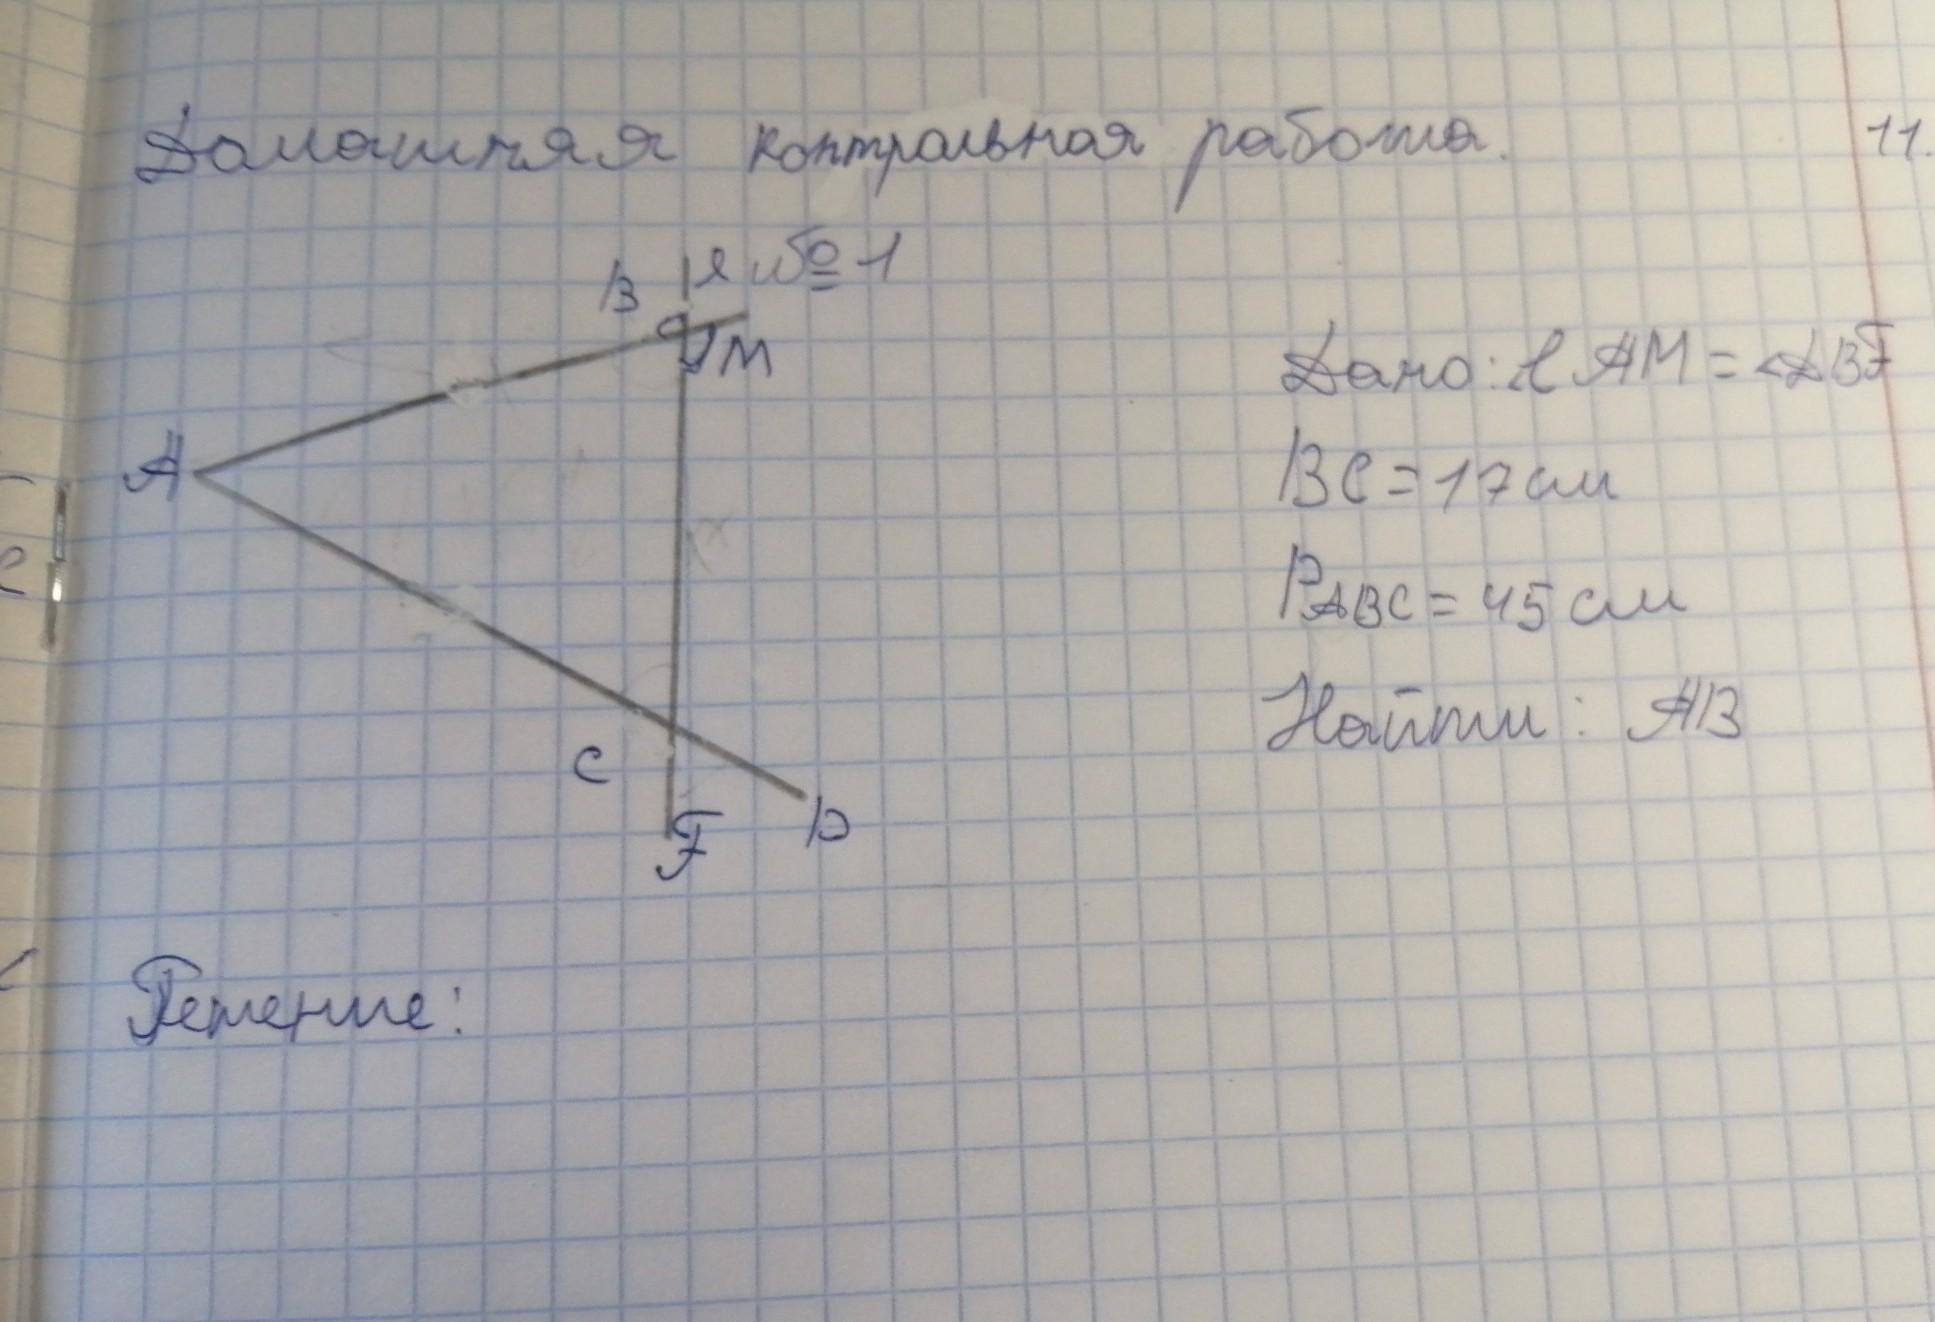 Домашняя контрольная работа. 11.
№1
B
M
A
C
F
D
Дано: ℓ AM = <DBF
BC = 17 см
PABC = 45 см
Найти: AB
Решение: